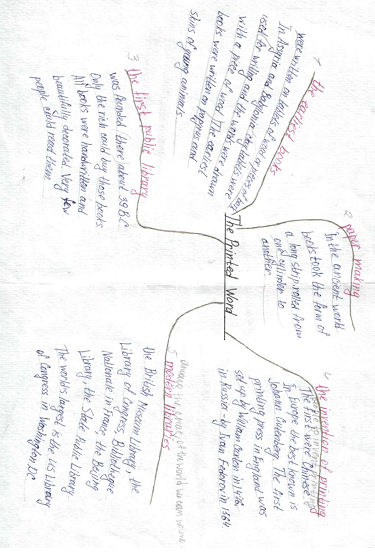 The Printed Word
1 the earliest books
were written on tablets of
In Assyria and Babylonia
used for writing and the words were
with a piece of reed. The earliest
books were written on papyrus and
skins of young animals
2 paper making
In the ancient world
books took the form of
a long strip rolled from
one cylinder to
another
3 the first public library
was founded there about 39 B.C.
Only the rich could buy those books
All books were handwritten and
beautifully decorated. Very few
people could read them
4 the invention of printing
The first were Chinese.
In Europe the best known is
Johann Gutenberg. The first
printing press in England was
set up by William Caxton in 1476
in Russia - by Ivan Federov in 1564
5 modern libraries
of the world we can name
the British Museum Library, the
Library of Congress, Bibliotheque
Nationale in France, the Beijing
Library, the State Public Library
The world's largest is the US Library
of Congress in Washington, DC